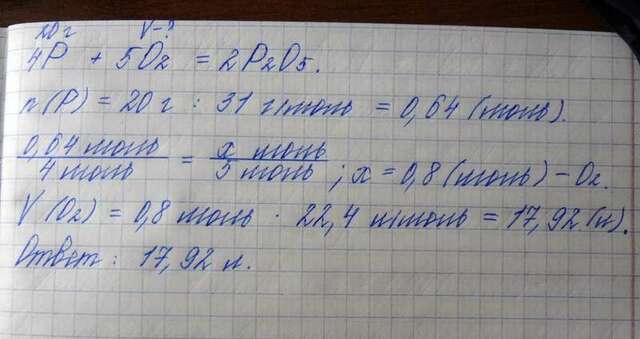 20 г V-?
4P + 5O₂ = 2P₂O₅.
n(P) = 20 г : 31 г/моль = 0,64 (моль).
0,64 моль / 4 моль = x моль / 5 моль ; x = 0,8 (моль) – O₂.
V(O₂) = 0,8 моль · 22,4 л/моль = 17,92 (л).
Ответ: 17,92 л.